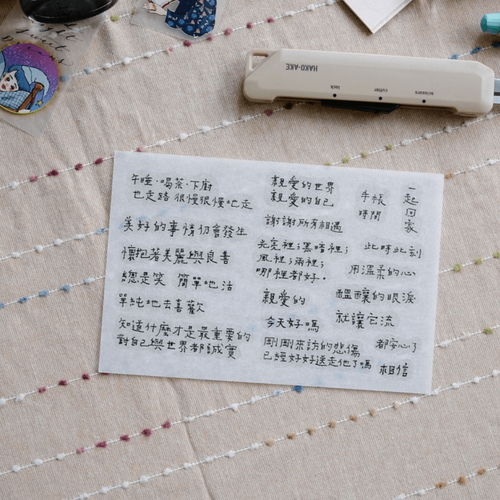 午睡·喝茶·下廚
也走路 很慢很慢地走
美好的事情初會發生
懷抱著美麗與良善
總是笑 簡單地活
單純地去喜歡
知道什麼才是最重要的
對自己與世界都誠實
親愛的世界
親愛的自己
謝謝所有相遇
光亮裡；黑暗裡；
風裡；雨裡；
哪裡都好．
親愛的
今天好嗎
剛剛來訪的悲傷
已經好好送走他了嗎
手帳
時間
一起回家
此時此刻
用溫柔的心
醞釀的眼淚
就讓它流
都安心了
相信
HAKO-AKE
scissors
cutter
lock